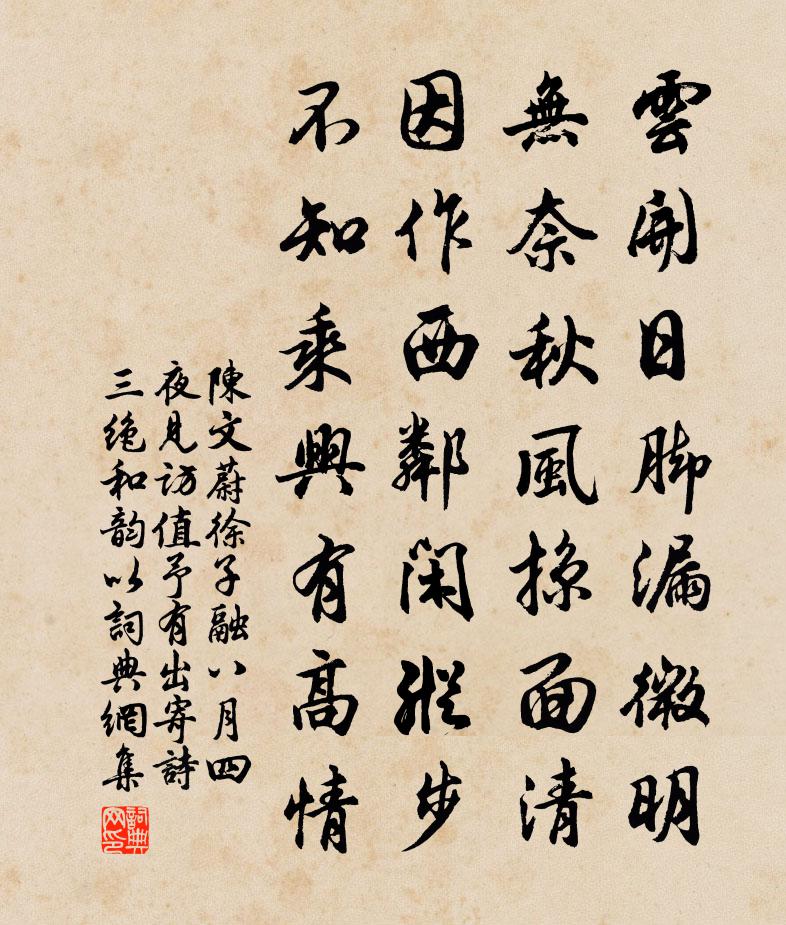 雲開日脚漏微明
無奈秋風掠面清
因作西鄰閑縱步
不知乘興有高情
陳文蔚徐子融八月四
夜見訪值予有出寄詩
三絶和韵以詞典網集
詞典网印